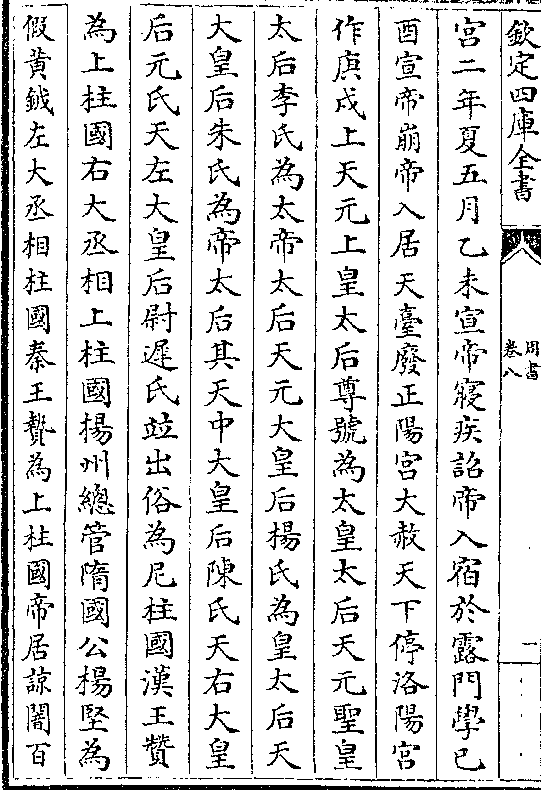 欽定四庫全書
周書
卷八
一
宮二年夏五月乙未宣帝寢疾詔帝入宿於露門學己
酉宣帝崩帝入居天臺廢正陽宮大赦天下停洛陽宮
作庚戌上天元上皇太后尊號為太皇太后天元聖皇
太后李氏為太帝太后天元大皇后楊氏為皇太后天
大皇后朱氏為帝太后其天中大皇后陳氏天右大皇
后元氏天左大皇后尉遲氏竝出俗為尼柱國漢王贊
為上柱國右大丞相上柱國楊州總管隋國公楊堅為
假黃鉞左大丞相柱國秦王贄為上柱國帝居諒闇百